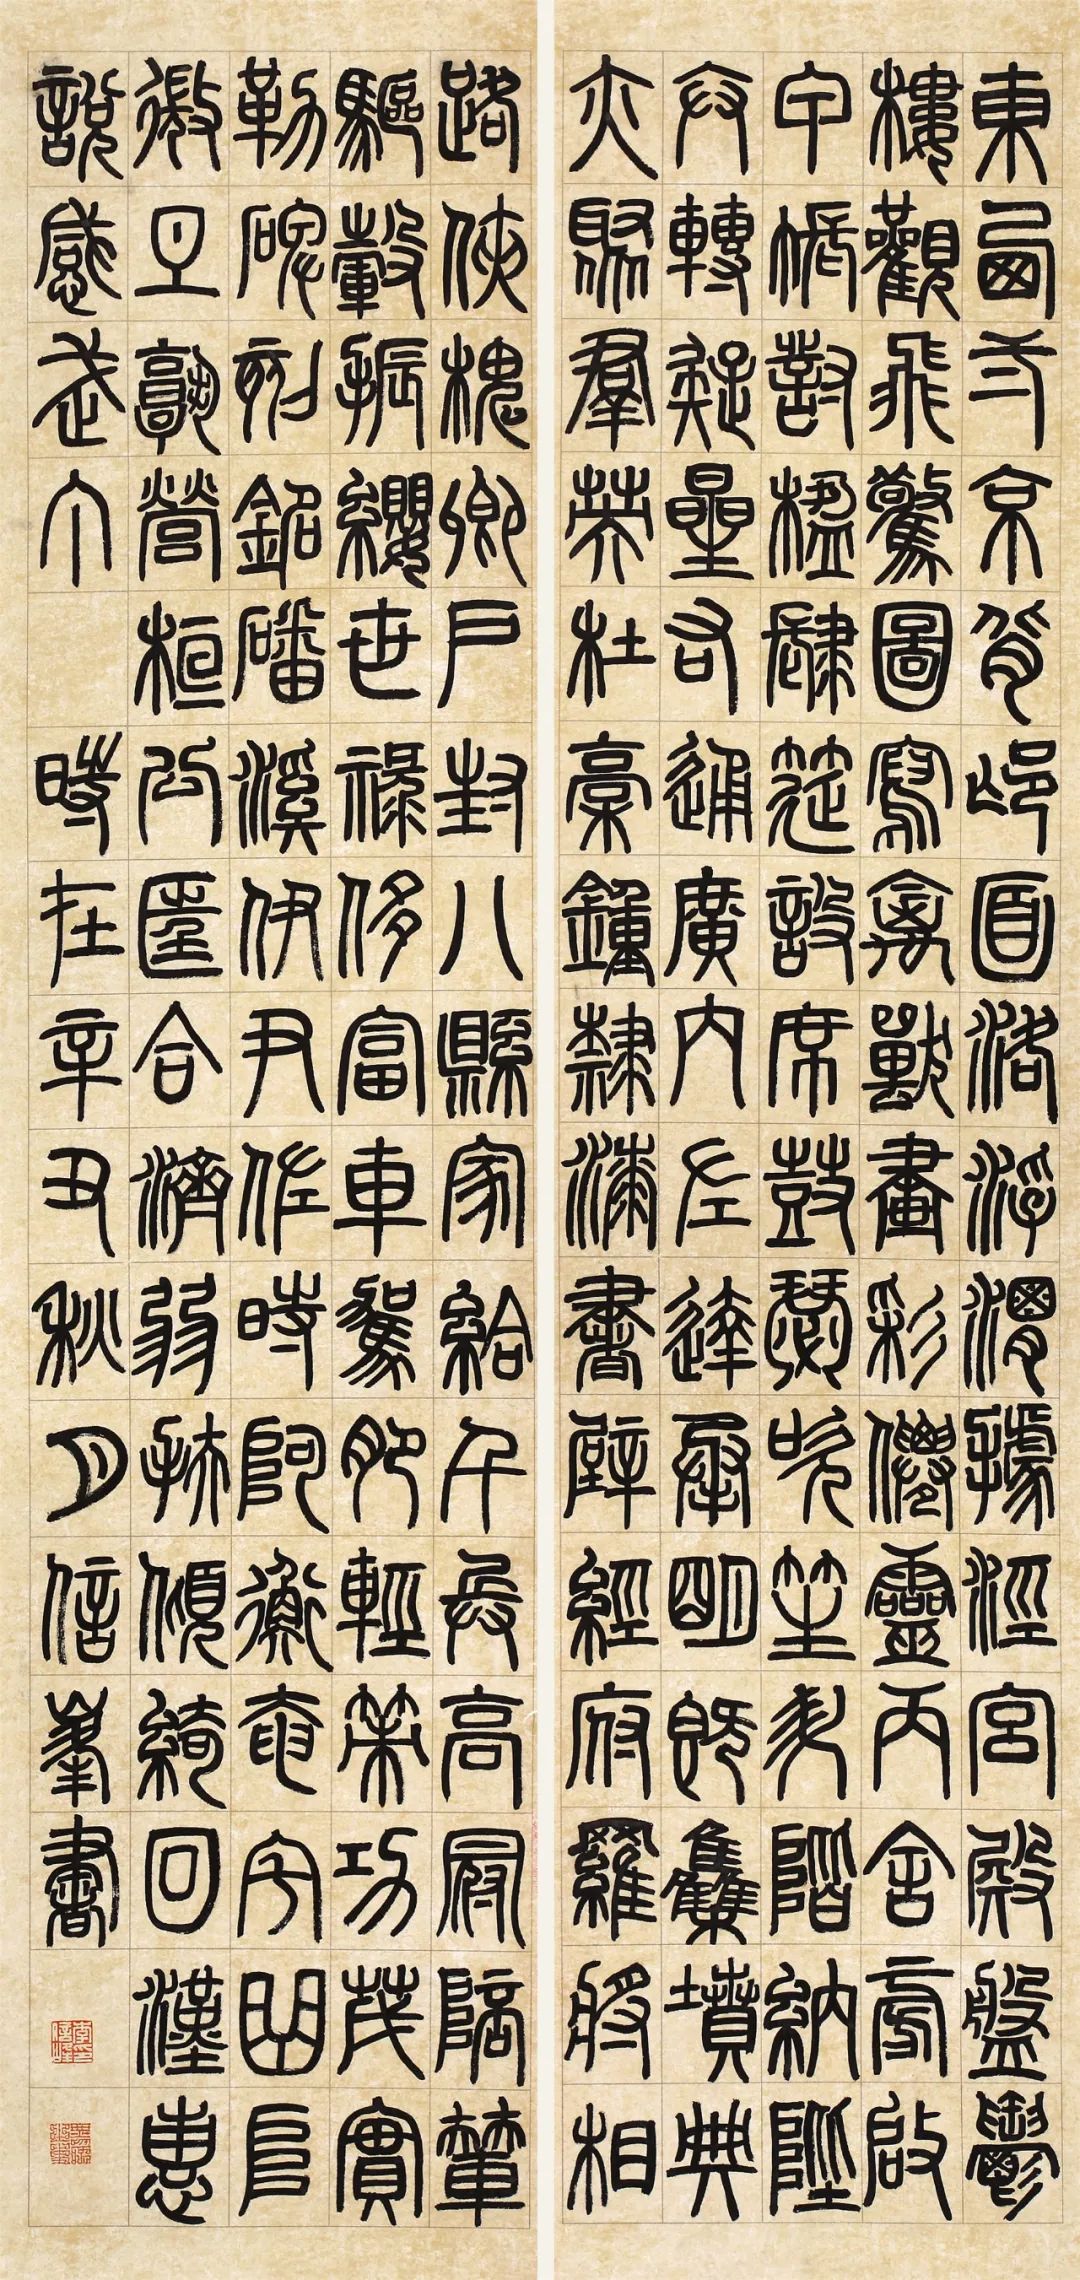 東西二京背邙面洛浮渭據涇宮殿盤鬱
樓觀飛驚圖寫禽獸畫彩僊靈丙舍傍啟
甲帳對楹肆筵設席鼓瑟吹笙升階納陛
弁轉疑星右通廣內左達承明既集墳典
亦聚羣英杜稾鐘隸漆書壁經府羅將相
路俠槐卿戶封八縣家給千兵高冠陪輦
驅轂振纓世祿侈富車駕肥輕策功茂實
勒碑刻銘磻溪伊尹佐時阿衡奄宅曲阜
微旦孰營桓公匡合濟弱扶傾綺回漢惠
說感武丁
時在辛丑秋月信峯書